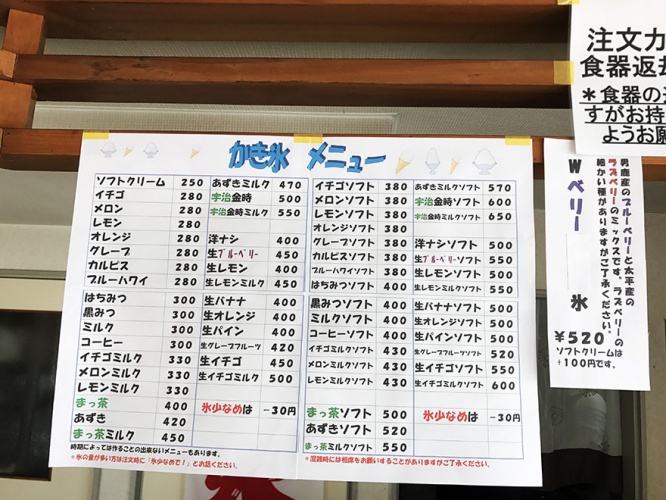 かき氷 メニュー
ソフトクリーム 250
イチゴ 280
メロン 280
レモン 280
オレンジ 280
グレープ 280
カルピス 280
ブルーハワイ 280
はちみつ 300
黒みつ 300
ミルク 300
コーヒー 300
イチゴミルク 330
メロンミルク 330
レモンミルク 330
まっ茶 400
あずき 420
まっ茶ミルク 450
あずきミルク 470
宇治金時 500
宇治金時ミルク 550
洋ナシ 400
生ブルーベリー 450
生レモン 400
生レモンミルク 450
生バナナ 400
生オレンジ 400
生パイン 400
生グレープフルーツ 420
生イチゴ 450
生イチゴミルク 500
氷少なめは -30円
イチゴソフト 380
メロンソフト 380
レモンソフト 380
オレンジソフト 380
グレープソフト 380
カルピスソフト 380
ブルーハワイソフト 380
はちみつソフト 400
黒みつソフト 400
ミルクソフト 400
コーヒーソフト 400
イチゴミルクソフト 430
メロンミルクソフト 430
レモンミルクソフト 430
まっ茶ソフト 500
あずきソフト 520
まっ茶ミルクソフト 550
あずきミルクソフト 570
宇治金時ソフト 600
宇治金時ミルクソフト 650
洋ナシソフト 500
生ブルーベリーソフト 550
生レモンソフト 500
生レモンミルクソフト 550
生バナナソフト 500
生オレンジソフト 500
生パインソフト 500
生グレープフルーツソフト 520
生イチゴソフト 550
生イチゴミルクソフト 600
氷少なめは -30円
時期によっては作ることの出来ないメニューもあります。
*氷の量が多い方は注文時に「氷少なめで!」とお話ください。
*混雑時には相席をお願いすることがありますがご了承ください。
男鹿産のブルーベリーと太平産の
ラズベリーのミックスです。ラズベリーの
細かい種がありますがご了承ください。
Wベリー 氷
¥520
ソフトクリームは
+100円です。
注文カ
食器返却
*食器の
すがお持
ようお願